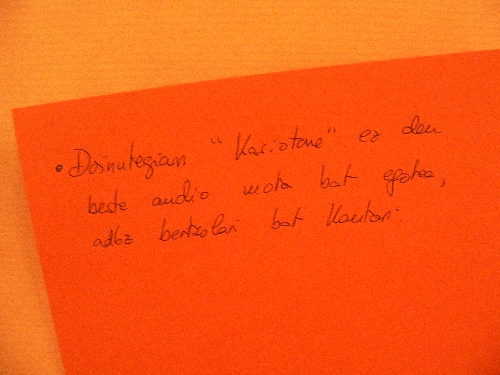 • Doinutegian "Kariotone" ez den
beste audio mota bat egotea,
adbz bertsolari bat kantari.